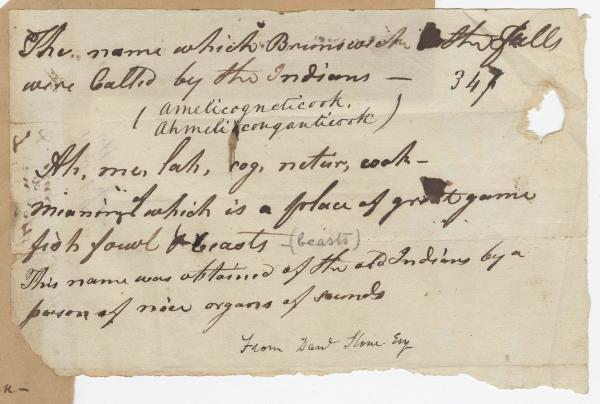 The name which Brunswick the Falls
were Called by the Indians — 347
( Amelicogneticook,
Ahmelixcouganticook )
Ah, me, lah, cog, netur, cook –
meaning of which is a place of great game
fish fowl & beasts (beasts)
This name was obtained of the old Indians by a
person of nice organs of sounds
From Danl Stone Esq
n –